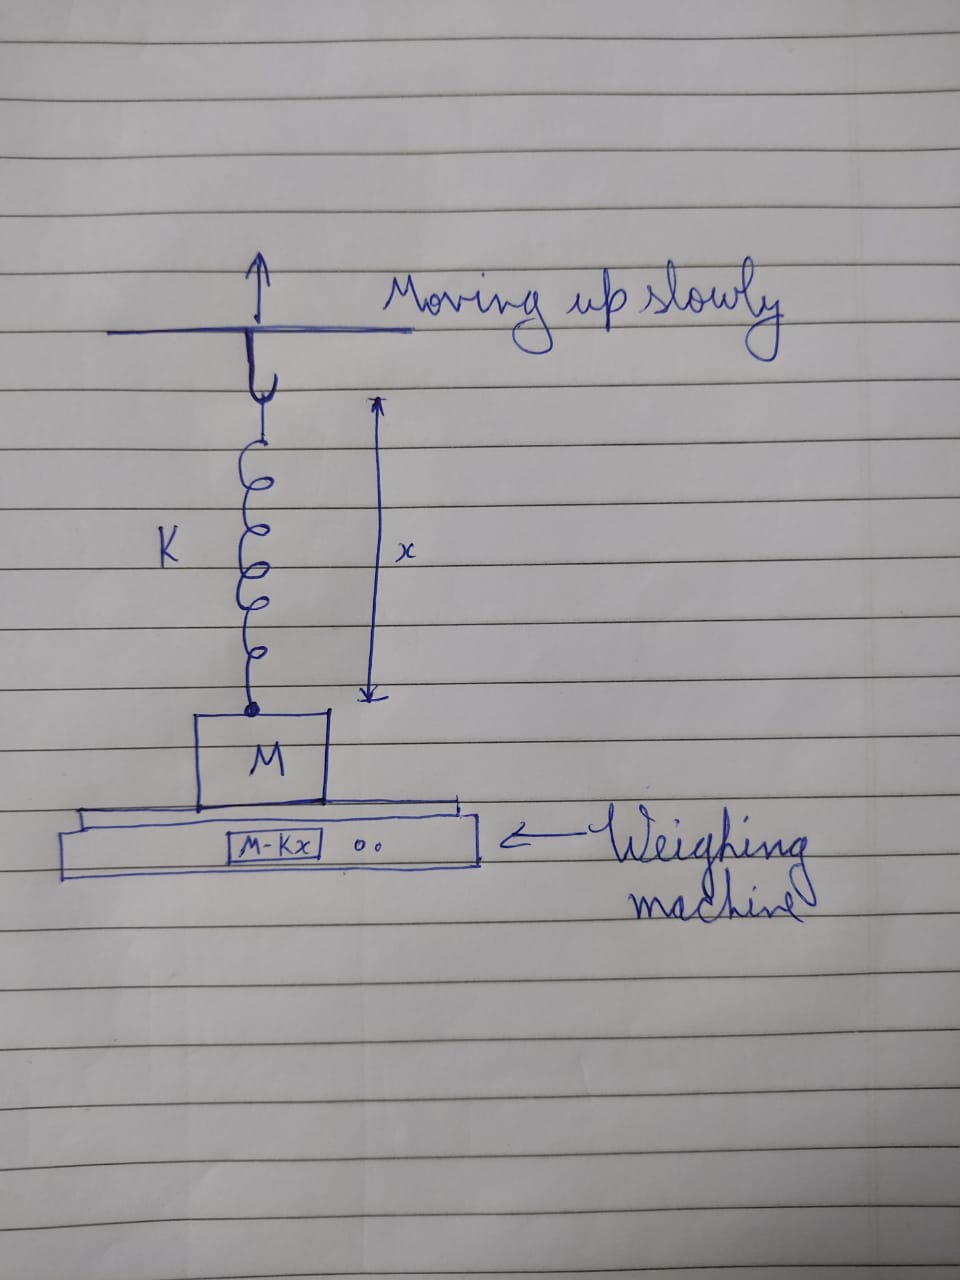 Moving up slowly
K
x
M
M-Kx
Weighing
machine